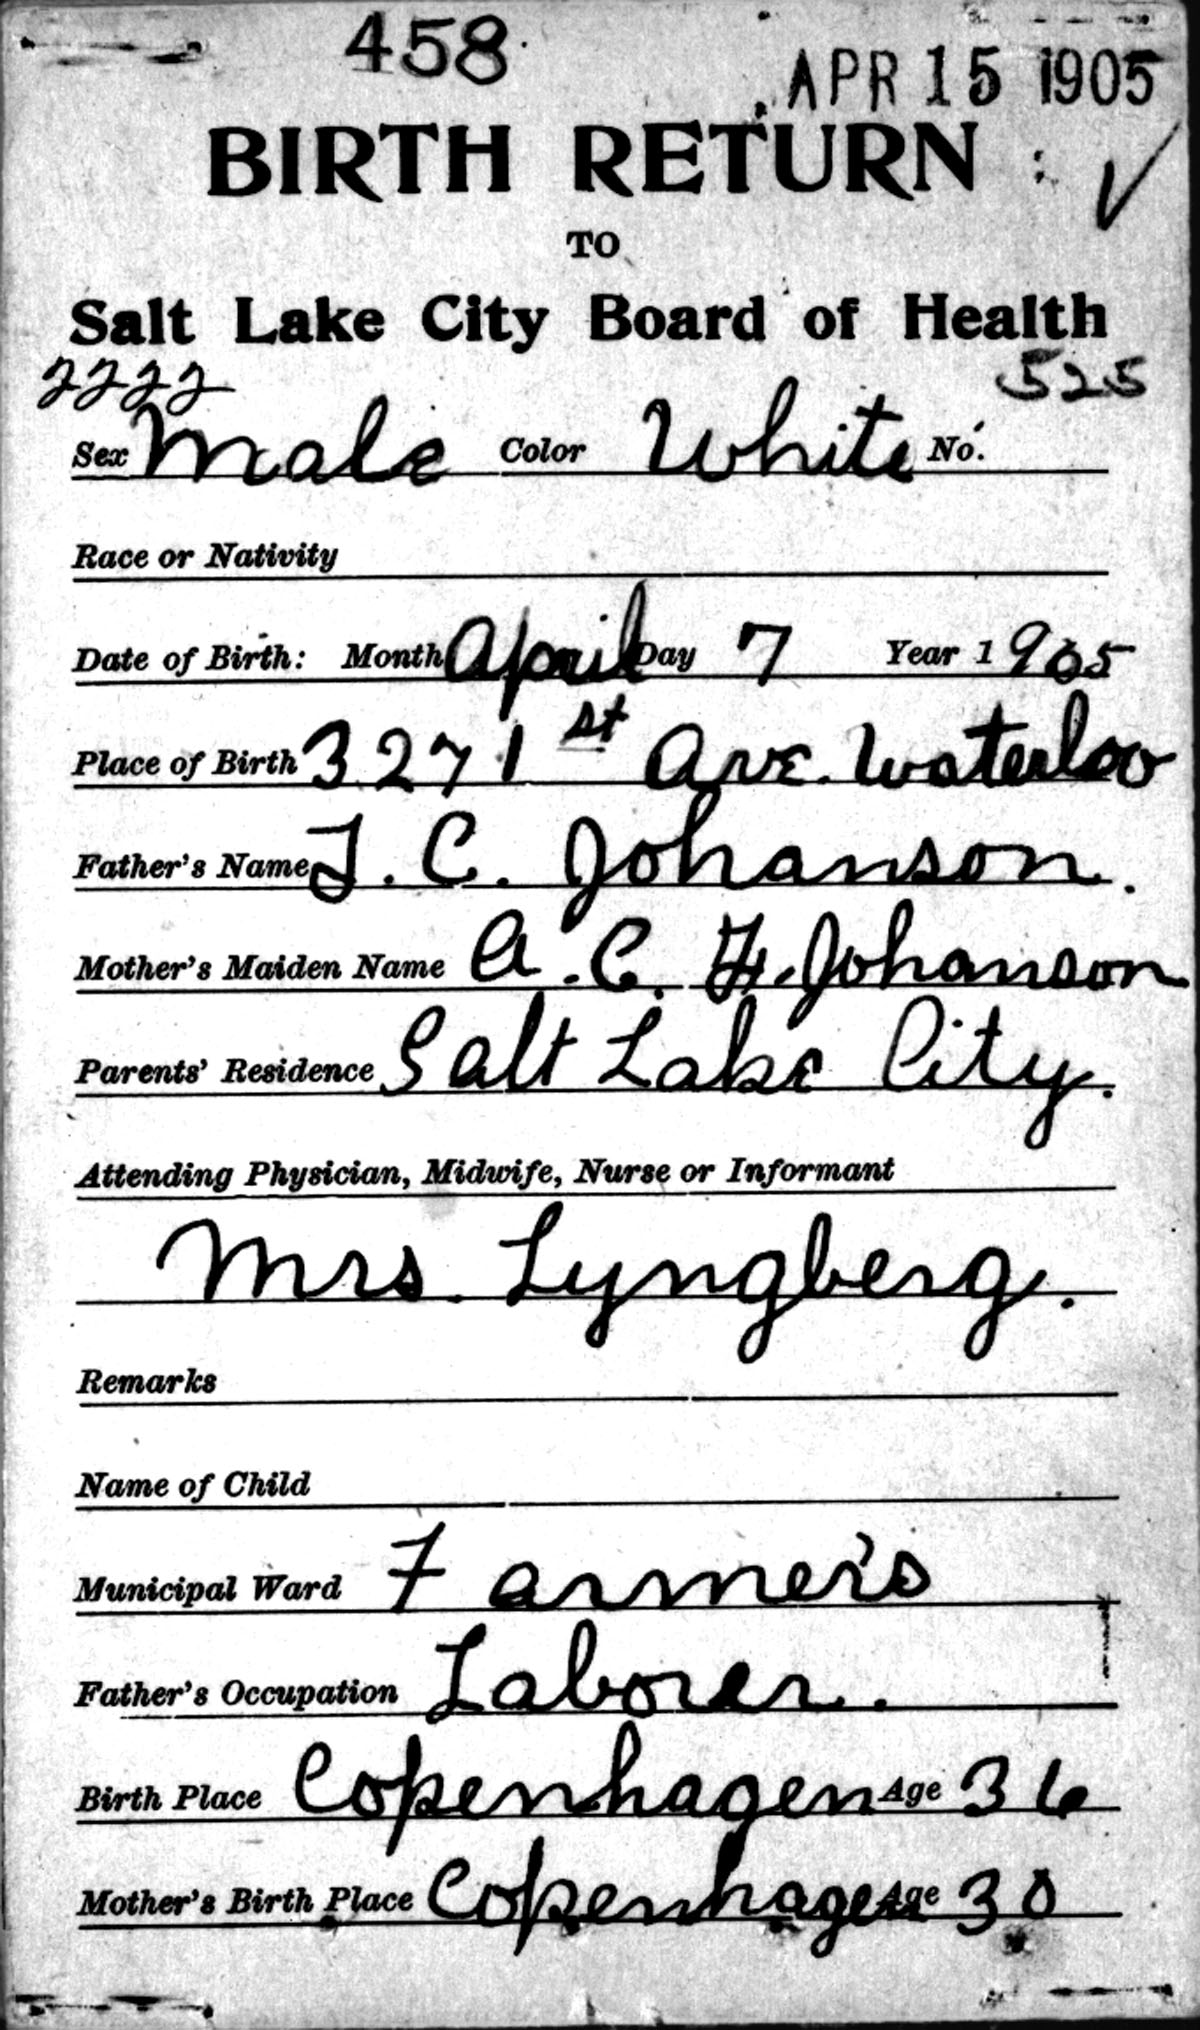 458
APR 15 1905
BIRTH RETURN
TO
Salt Lake City Board of Health
2222 525
Sex Male Color White No.
Race or Nativity
Date of Birth: Month April Day 7 Year 1905
Place of Birth 3271 st Ave. Waterloo
Father's Name J. C. Johanson.
Mother's Maiden Name A. C. H. Johanson
Parents' Residence Salt Lake City.
Attending Physician, Midwife, Nurse or Informant
Mrs. Lyngberg.
Remarks
Name of Child
Municipal Ward Farmer's
Father's Occupation Laborer.
Birth Place Copenhagen Age 36
Mother's Birth Place Copenhagen Age 30